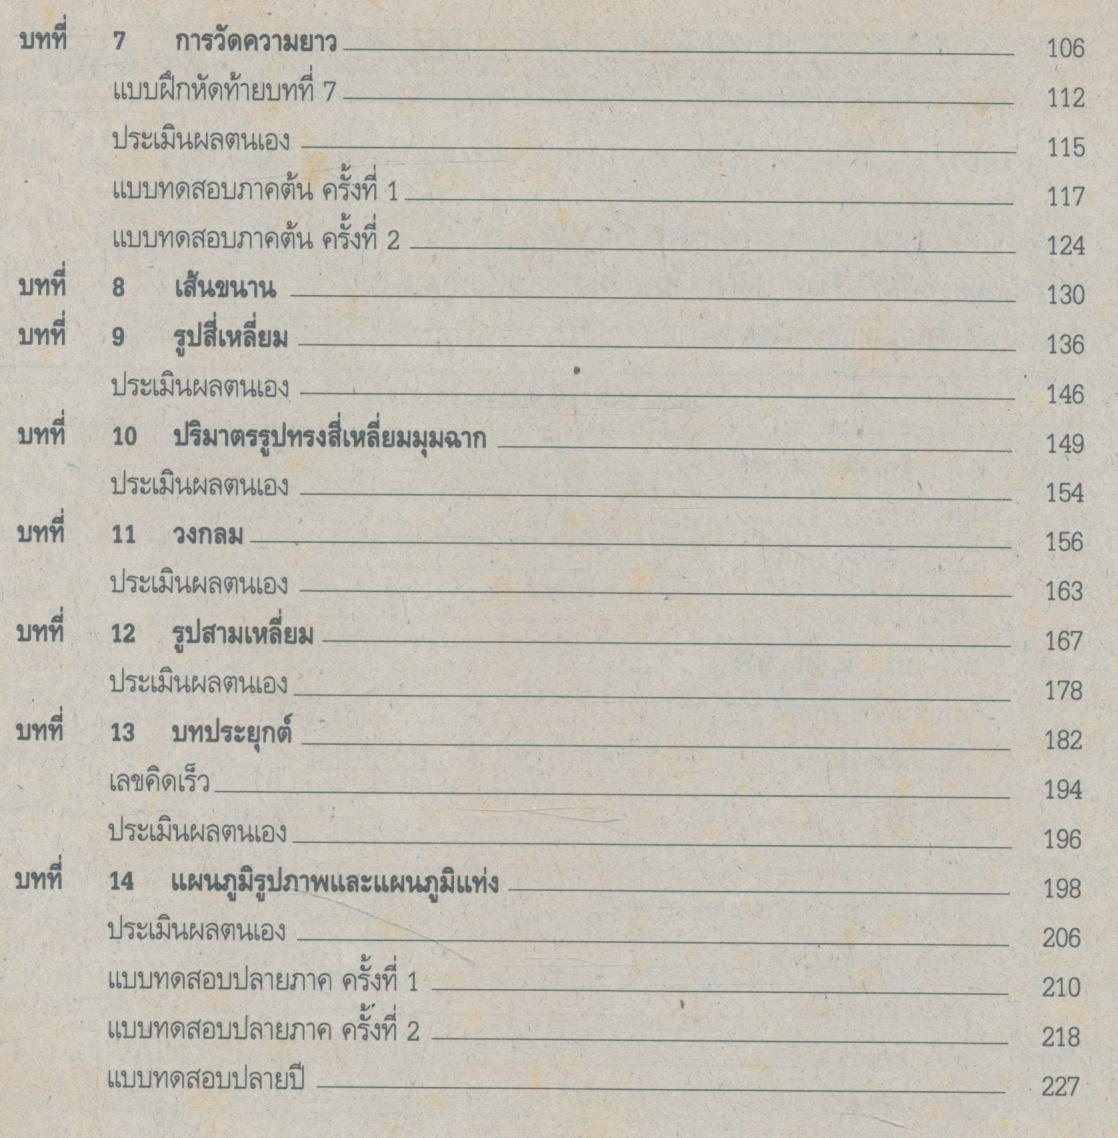 บทที่ 7 การวัดความยาว 106
แบบฝึกหัดท้ายบทที่ 7 112
ประเมินผลตนเอง 115
แบบทดสอบภาคต้น ครั้งที่ 1 117
แบบทดสอบภาคต้น ครั้งที่ 2 124
บทที่ 8 เส้นขนาน 130
บทที่ 9 รูปสี่เหลี่ยม 136
ประเมินผลตนเอง 146
บทที่ 10 ปริมาตรรูปทรงสี่เหลี่ยมมุมฉาก 149
ประเมินผลตนเอง 154
บทที่ 11 วงกลม 156
ประเมินผลตนเอง 163
บทที่ 12 รูปสามเหลี่ยม 167
ประเมินผลตนเอง 178
บทที่ 13 บทประยุกต์ 182
เลขคิดเร็ว 194
ประเมินผลตนเอง 196
บทที่ 14 แผนภูมิรูปภาพและแผนภูมิแท่ง 198
ประเมินผลตนเอง 206
แบบทดสอบปลายภาค ครั้งที่ 1 210
แบบทดสอบปลายภาค ครั้งที่ 2 218
แบบทดสอบปลายปี 227